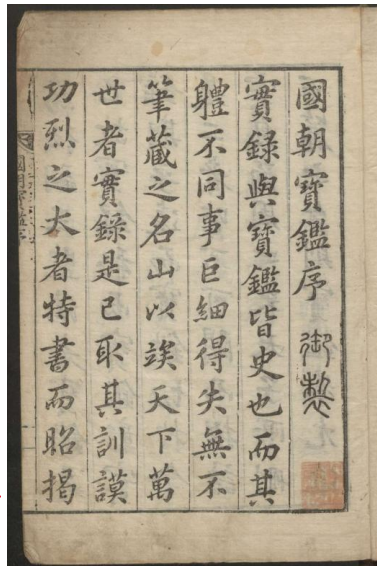 國朝寶鑑序 御製
實錄與寶鑑皆史也而其
軆不同事巨細得失無不
筆藏之名山以竢天下萬
世者實錄是已取其訓謨
功烈之大者特書而昭揭
國朝寶鑑序